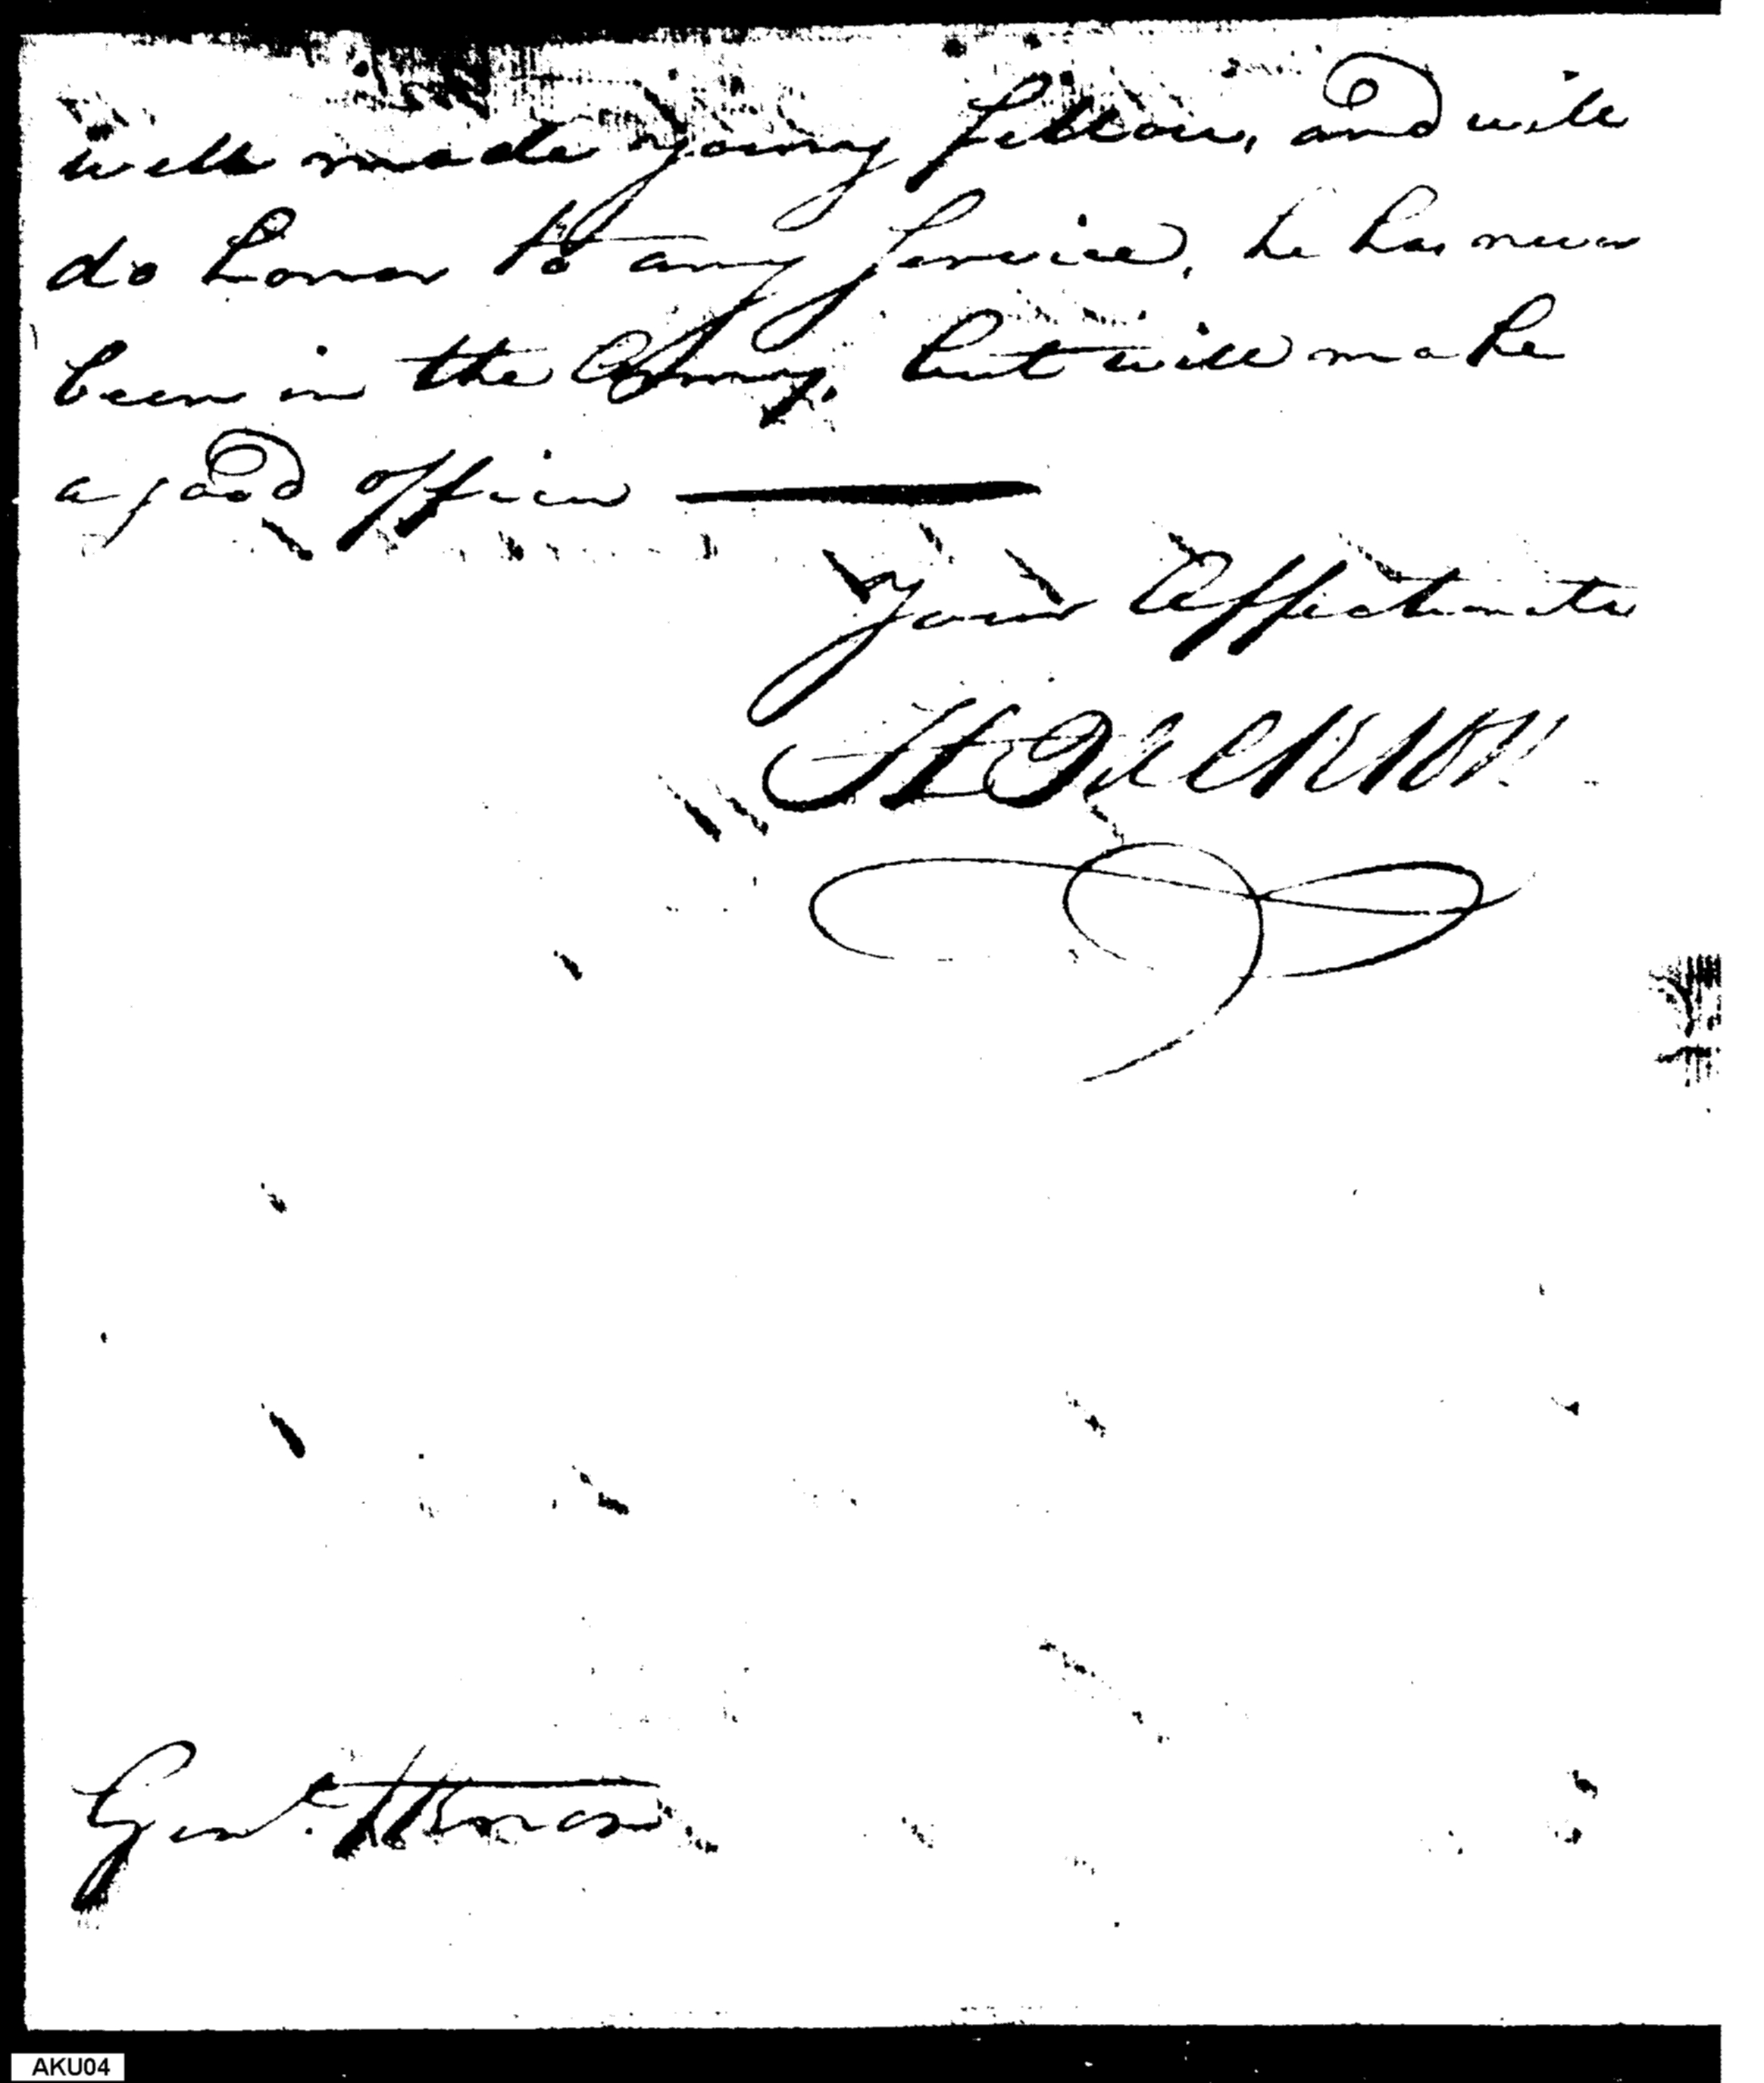 well made young fellow, and will
do honor to any service, he has never
been in the Army, but will make
a good officer
Your Affectionate
Genl.
AKU04